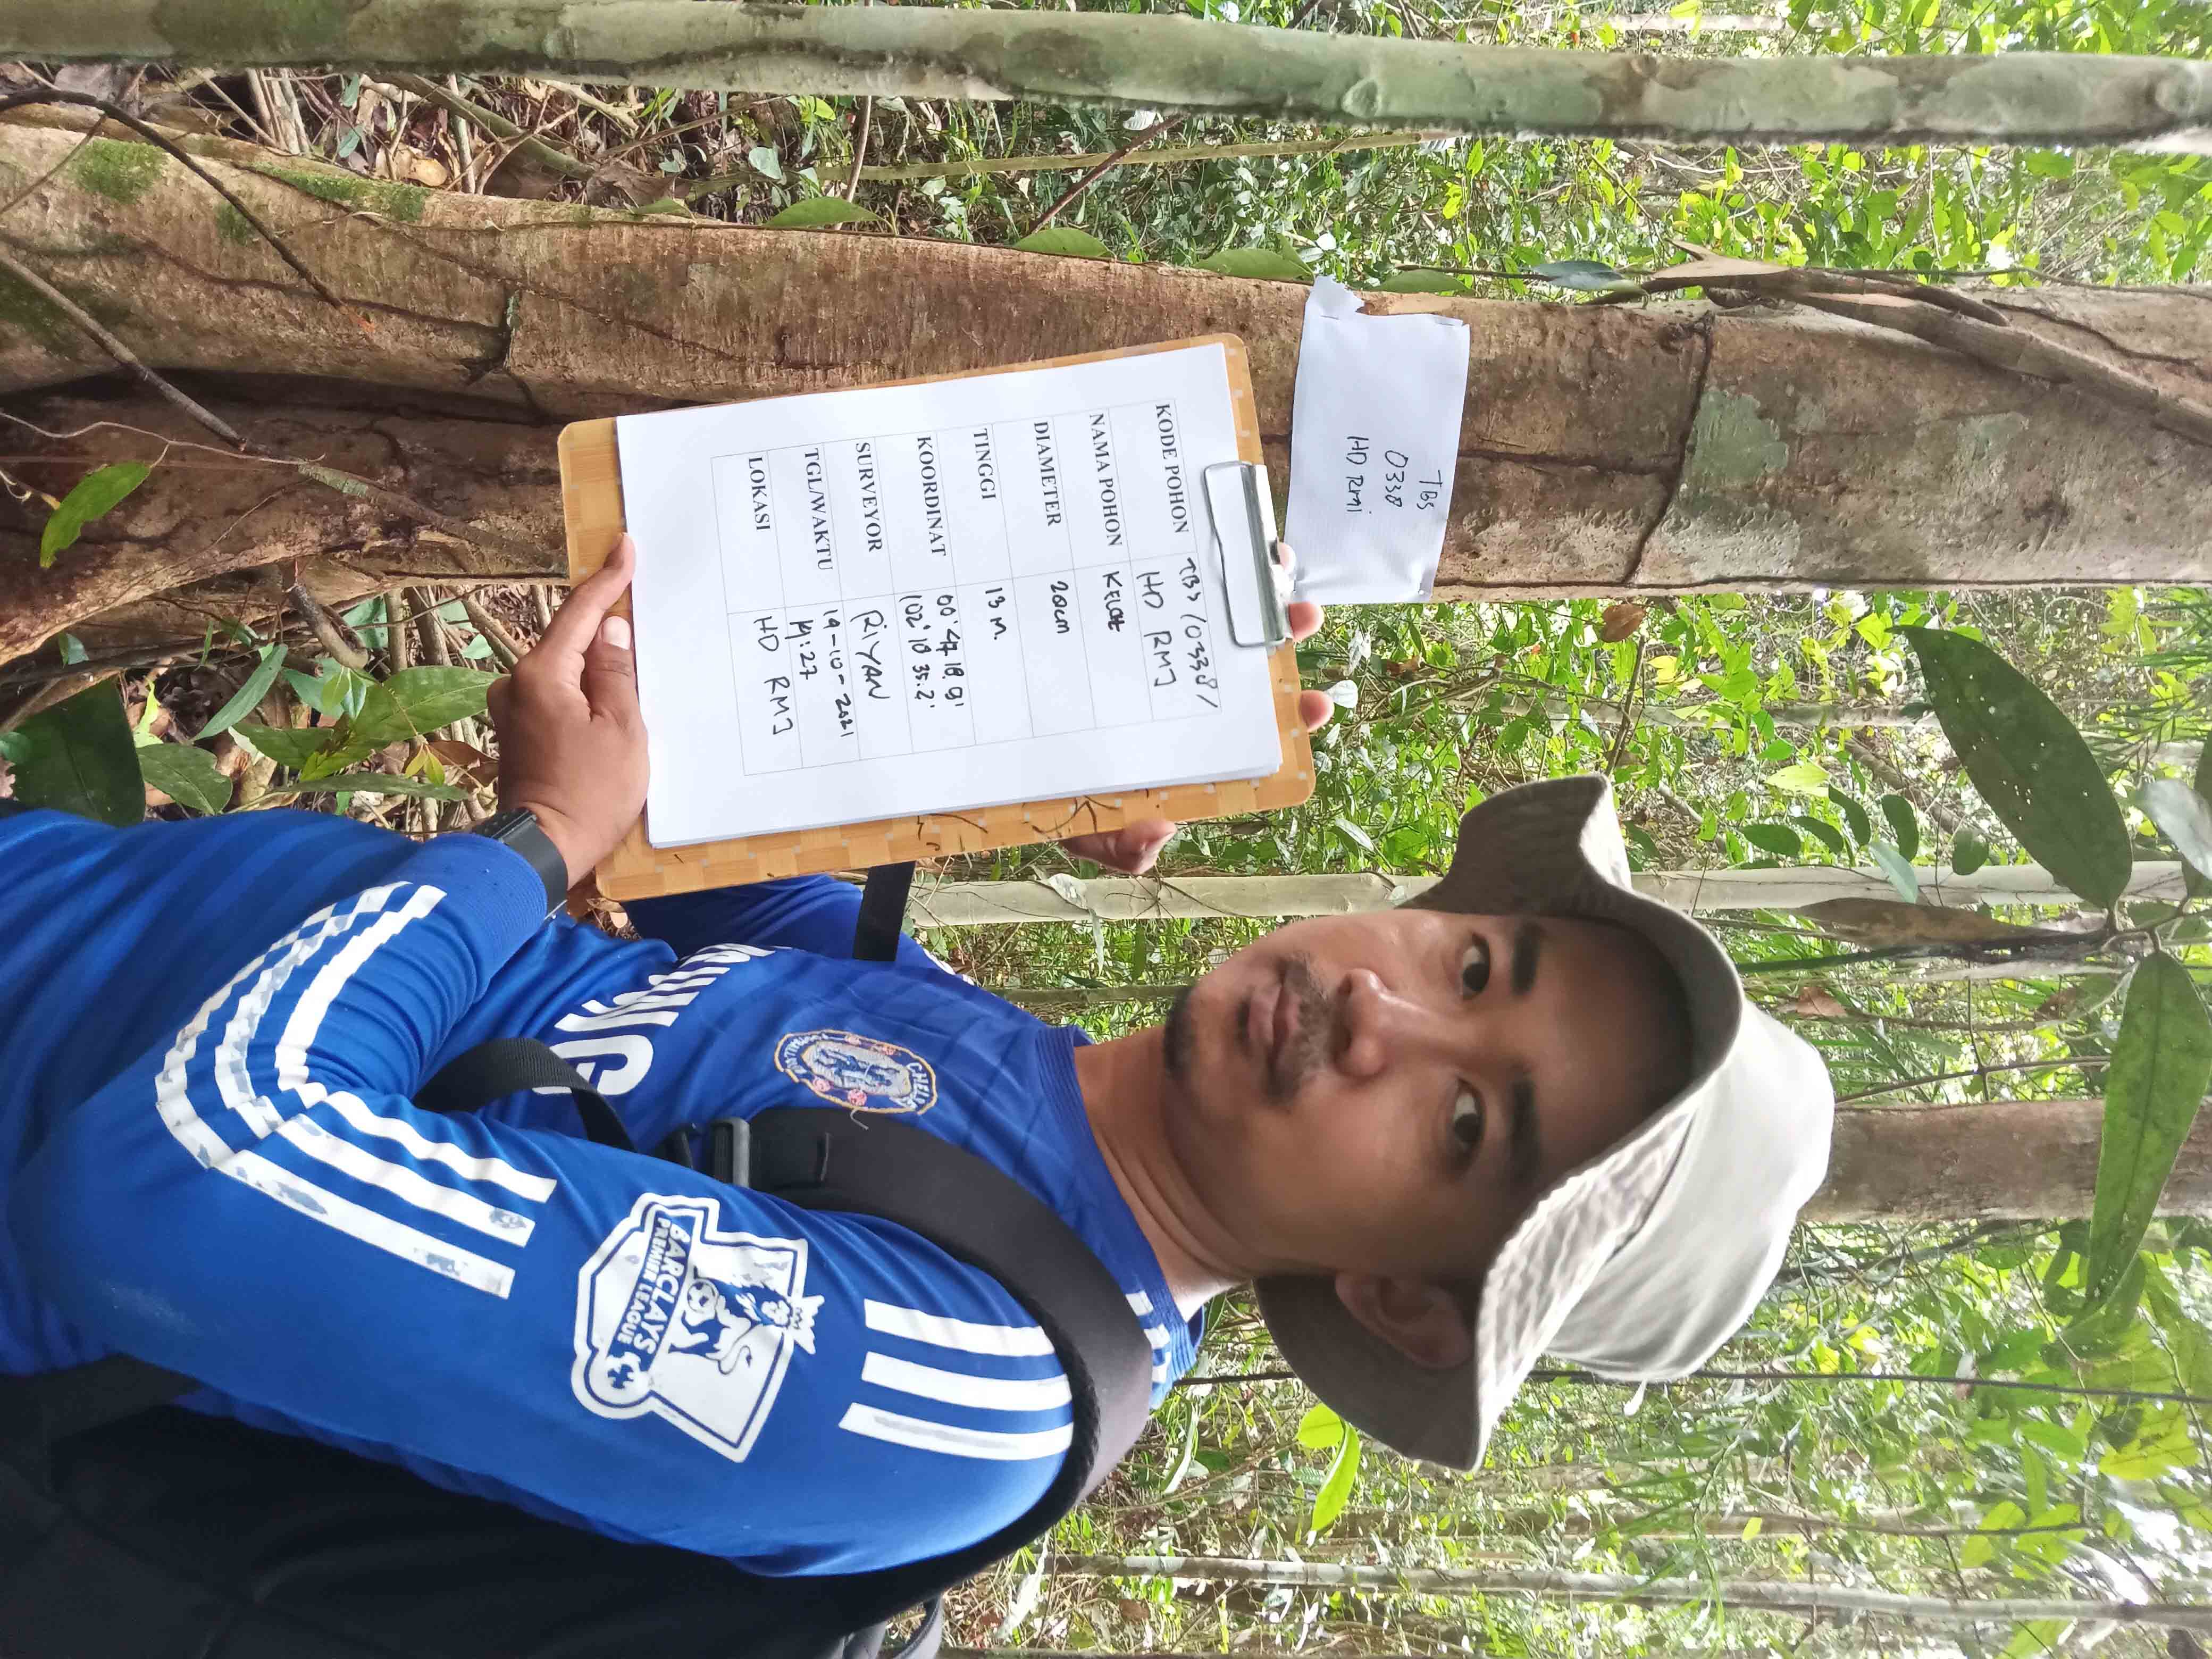 TBS
0338
HD RMJ
KODE POHON TBS/0338/
HD RMJ
NAMA POHON KELAT
DIAMETER 20cm
TINGGI 13 M.
KOORDINAT 00° 47 18.9'
102° 18 35.2'
SURVEYOR RIYAN
TGL/WAKTU 14-10-2021
14:27
LOKASI HD RMJ
CHELSE
FOOTBALL
SUNG
BARCLAYS
PREMIER LEAGUE